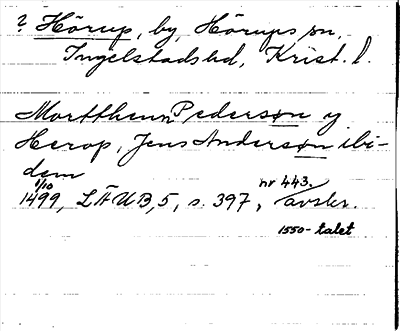 ? Hörup, by, Hörups sn,
Ingelstads hd, Krist. l.
Mortthenn Pedersøn y
Herop, Jens Andersøn ibi-
dem
1/10 nr 443.
1499, LÄUB, 5, s. 397, avskr.
1550-talet